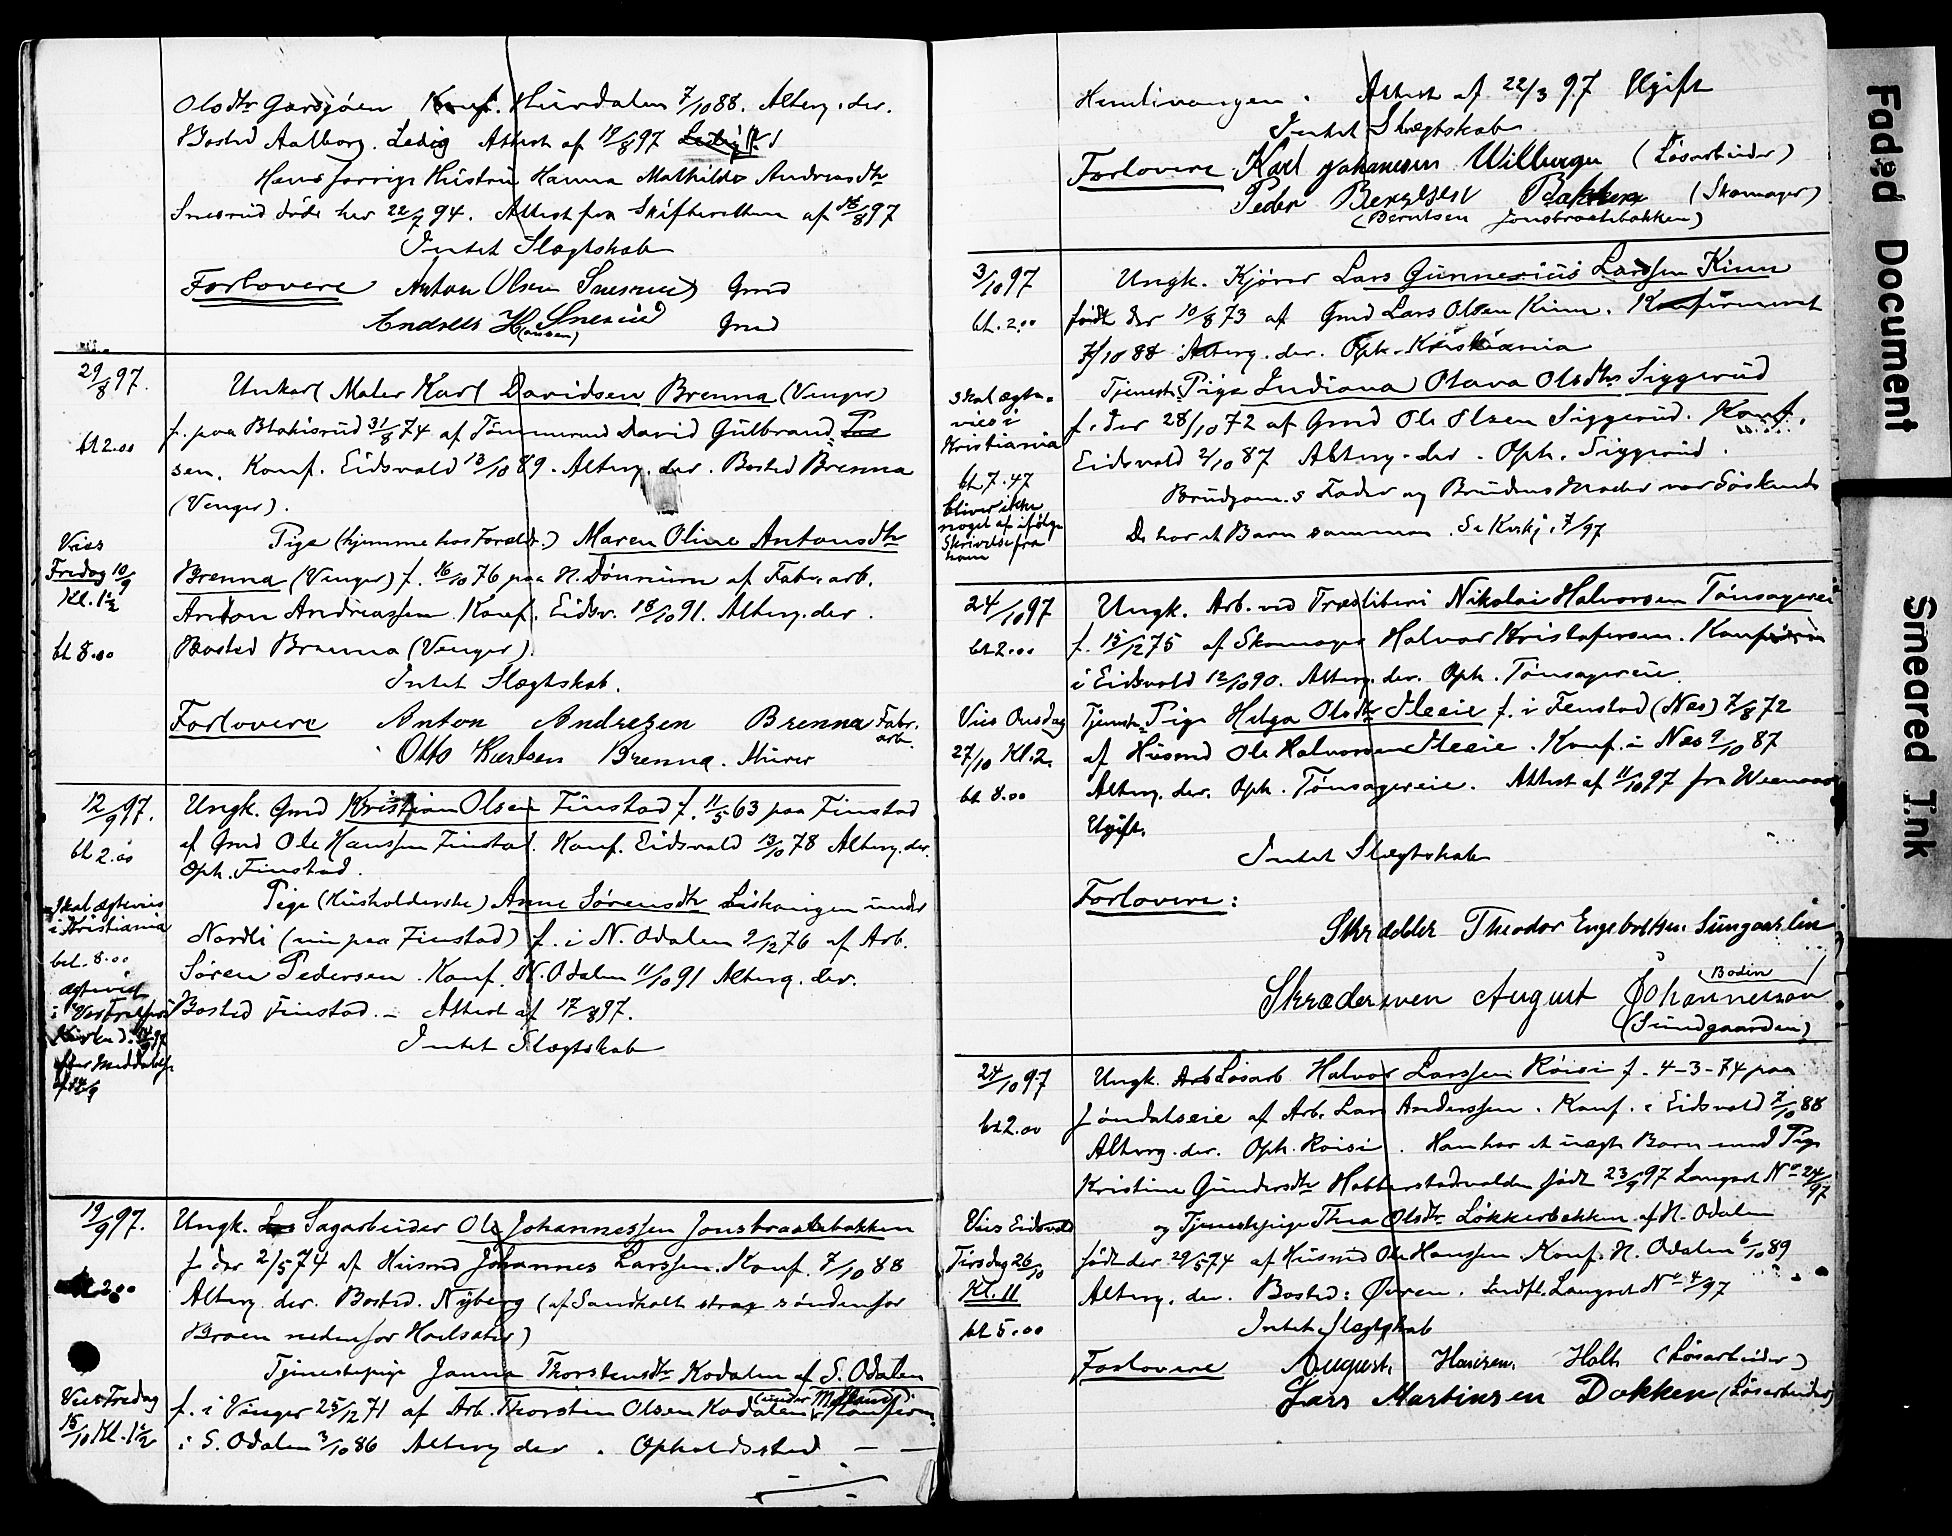 Olsdtr Garsjøen Konf. Hurdalen 7/10 88. Alterg. der.
Bosted Aalborg. Ledig Attest af 19/8 97
Hans forrige Hustru Hanna Mathilde Andreasdtr
Snesrud døde her 22/7 94. Attest fra Skifteretten af 18/8 97
Intet Slægtskab
Forlovere Anton Olsen Snesrud Gmd
Andreas H Snesrud Gmd
(ansen)
29/8 97.
bt 2.00
Unkarl Maler Karl Davidsen Brenna (Venger)
f. paa Blakisrud 31/8 74 af Tømmermd David Gulbrand
sen. Konf. Eidsvald 13/10 89. Alterg. der. Bosted Brenna
(Venger).
Vies
Fredag 10/9
Kl. 1 1/2
bt 8.00
Pige (hjemme hos Foræld.) Maren Oline Antonsdtr
Brenna (Venger) f. 16/10 76 paa N. Dønnum af Fabr. arb.
Anton Andreassen Konf. Eidsv. 18/10 91. Alterg. der.
Bosted Brenna (Venger).
Intet Slægtskab.
Forlovere Anton Andresen Brenna Fabr.
arb.
Otto Karlsen Brenna. Murer
12/9 97.
bt 2.00
Ungk. Gmd Kristian Olsen Finstad f. 11/5 63 paa Finstad
af Gmd Ole Hanssen Finstad. Konf. Eidsvald 13/10 78 Alterg. der.
Oph. Finstad.
Skal ægtevies
i Kristiania
bet. 8.00
Pige (Husholderske) Anne Sørensdtr under
Nordli (nu paa Finstad) f. i N. Odalen 9/12 76 af Arb.
Søren Pedersen. Konf. N. Odalen 11/10 91 Alterg. der.
Bosted Finstad. – Attest af 17/8 97.
Intet Slægtskab
ægteviet
i Vor Frelsers
Kirke d. 14/9 97
efter Meddelelse
af 14/9
19/9 97.
bt 2.00
Ungk. Sagarbeider Ole Johannessen Jonsbraatebakken
f. der 2/5 74 af Husmd Johannes Larssen. Konf. 7/10 88
Alterg. der. Bosted. Nyberg (af Sandholt strax søndenfor
Broen nedenfor Holsæter)
Vies Fredag
15/10 Kl. 1 1/2
Tjenestepige Janna Thorstensdtr Kodalen af S. Odalen
f. i Vinger 25/12 71 af Arb. Thorsten Olsen Kodalen (under Konfirm.
i S. Odalen 3/10 86 Alterg der. Opholdssted – –
Attest af 22/3 97 Ugift
Intet Slægtskab
Forlovere Karl Johansen Wilberga (Løsarbeider)
Peder Berntsen Bakken (Skomager)
(Berntsen Jonsbraatebakken)
3/10 97
bt. 2.00
Ungk. Kjører Lars Gunnerius Larssen Kinn
født der 10/8 73 af Gmd Lars Olsen Kinn. Konfirmeret
7/10 88 Alterg. der. Oph. Kristiania
skal ægte-
vies i
Kristiania
bt 7.47
bliver ikke
noget af ifølge
Skrivelse fra
ham
Tjeneste Pige Indiana Olava Olsdtr Siggerud
f. der 28/10 72 af Gmd Ole Olsen Siggerud. Konf.
Eidsvald 2/10 87 Alterg. der. Oph. Siggerud.
Brudgom.s Fader og Brudens Moder var Søskende
De har et Barn sammen. 7/97
24/10 97
bt 2.00
Ungk. Arb. ved Træsliberi Nikolai Halvorsen Tønsagereie
f. 15/12 75 af Skomager Halvor Kristofersen. Konf
i Eidsvald 12/10 90. Alterg. der. Oph. Tønsagereie.
Vies Onsdag
27/10 Kl. 2.
bt 8.00
Tjeneste Pige Helga Olsdtr f. i Fenstad (Næs) 7/8 72
af Husmd Ole Halvorsen. Konf. i Næs 9/10 87
Alterg. der. Oph. Tønsagereie. Attest af 11/10 97 fra
Ugift.
Intet Slægtskab
Forlovere:
Skrædder Theodor Engebretsen
Bodin
Skrædersven August Johannesson
(Sundgaarden)
24/10 97
bt 2.00
Ungk. Løsarb Halvor Larssen Røisi f. 4-3-74 paa
Jøndalseie af Arb. Lars Anderssen. Konf. i Eidsvald 7/10 88
Alterg. der. Oph. Røisi. Han har et uægte Barn med Pige
Kristine Gundersdtr Habberstadvalden født 23/9 97 Langset No 24/97
Vies Eidsvold
Tirsdag 26/10
Kl. 11
bt 5.00
og Tjenestepige Thea Olsdtr Løkkerbakken af N. Odalen
født der 29/5 74 af Husmd Ole Hanssen. Konf. N. Odalen 6/10 89
Alterg. der. Bosted: Øvren. Indfl. Langset No 4/97
Intet Slægtskab
Forlovere August Hansen Holt (Løsarbeider)
Lars Martinsen Dokken (Løsarbeider)
Faded Document
Smeared Ink